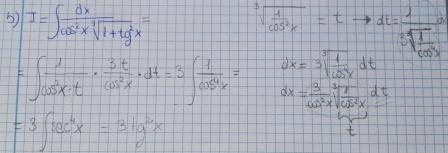 5) I = ∫ dx / (cos²x ∛(1+tg²x)) =
∛(1/cos²x) = t → dt = 1 / (3∛(1/cos⁴x)) dx
= ∫ 1/(cos²x·t) · 3t/cos²x · dt = 3∫ 1/cos⁴x =
dx = 3∛(1/cos⁴x) dt
dx = 3/cos²x ∛(1/cos²x) dt
t
= 3∫sec⁴x = 3tg²x